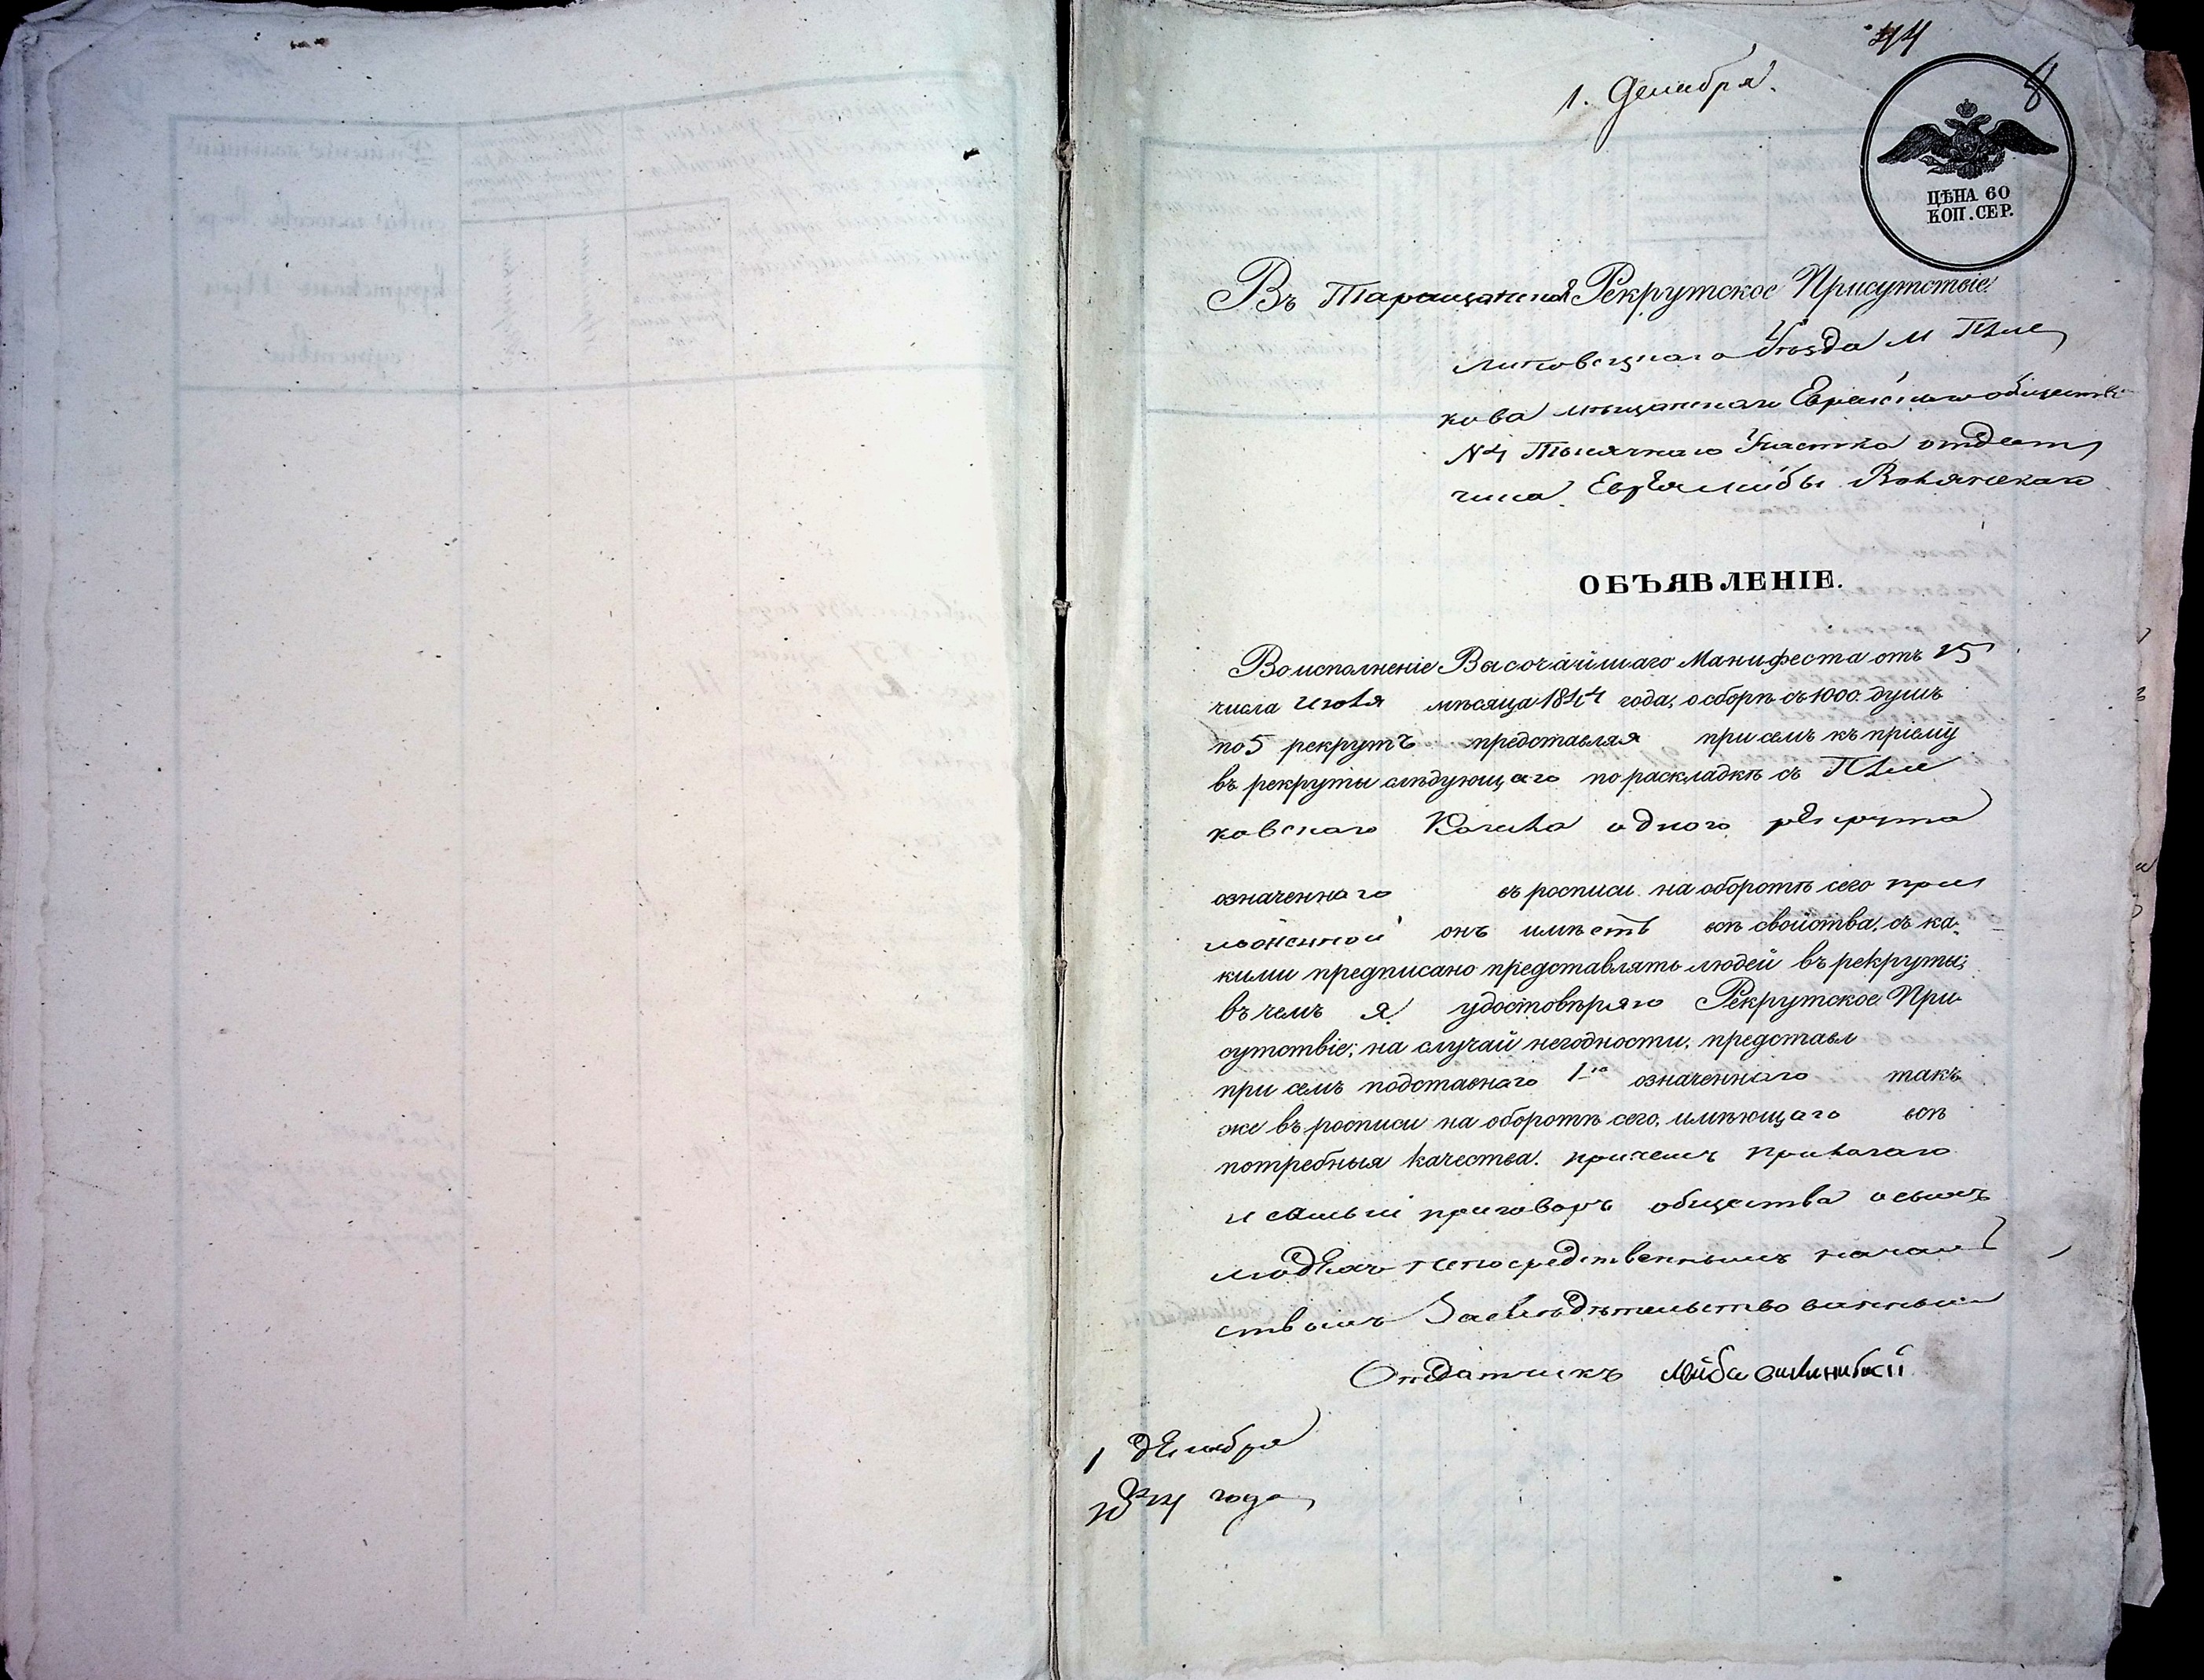 44
8
1. Декабря.
ЦѢНА 60
КОП. СЕР.
Въ Таращанское Рекрутское Присутствіе
Липовецкаго Уѣзда м Пля
кова мѣщанскаго Еврейскаго общества
№4 Тысячнаго Участка отдат
чика Еврея Лейбы
ОБЪЯВЛЕНІЕ.
Во исполненіе Высочайшаго Манифеста отъ 25
числа Июля мѣсяца 1844 года, о сборѣ съ 1000. душъ
по 5 рекрутъ представляя при семъ къ пріему
въ рекруты слѣдующаго по раскладкѣ съ Пля
ковскаго Кагала одного рекрута
означеннаго въ росписи на оборотѣ сего при
ложенной онъ имѣетъ всѣ свойства, съ ка-
кими предписано представлять людей въ рекруты;
въ чемъ я удостовѣряю Рекрутское При-
сутствіе; на случай негодности, представл
при семъ подставнаго 1го означеннаго так
же въ росписи на оборотѣ сего, имѣющаго всѣ
потребныя качества. причемъ прилагаю
и самый приговоръ общества о сихъ
людяхъ непосредственнымъ началь
ствомъ Засвидѣтельствованный
Отдатчикъ Лейба
1 декабря
1844 года